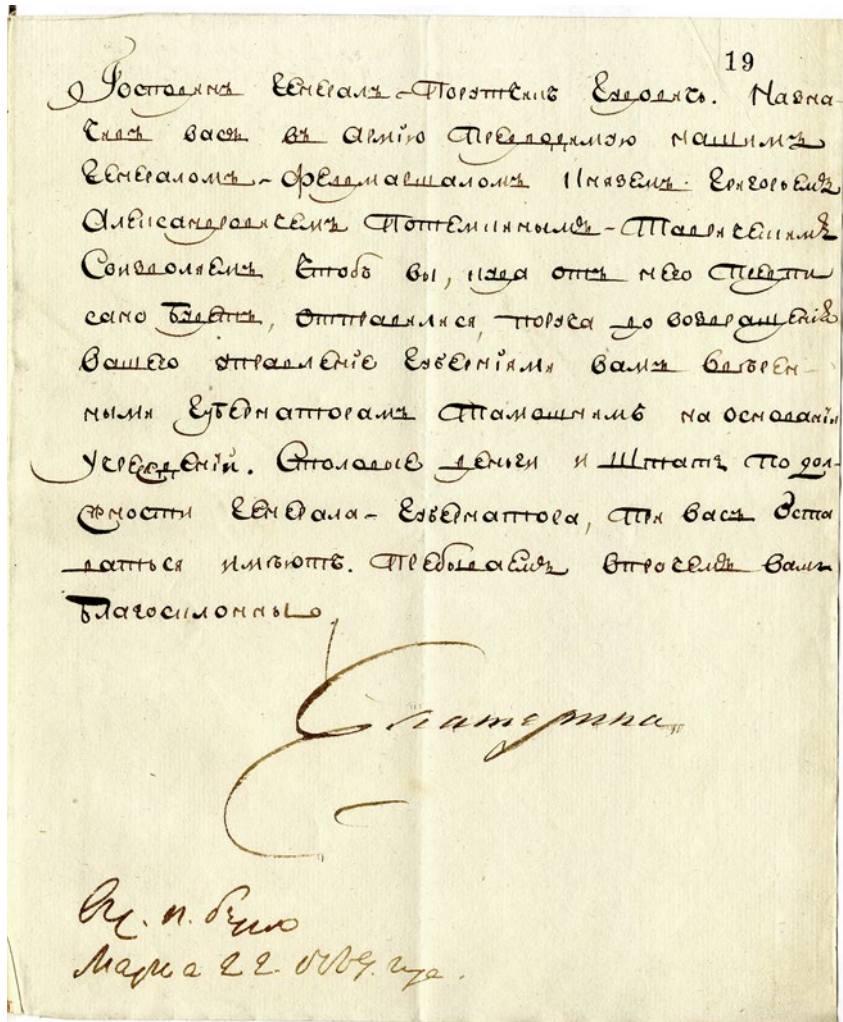 19
Господинъ Генералъ-Порутчикъ Кудовичь. Назна-
чивъ васъ въ Армію предводимую нашимъ
Генераломъ-Фелдмаршаломъ Княземъ Григорьемъ
Александровичемъ Потемкинымъ-Таврическимъ
Соизволяемъ чтобъ вы, куда отъ него предпи
сано будетъ, отправилися, поруча до возвращенія
вашего управленіе Губерніями вамъ ввѣрен-
ными Губернаторамъ тамошнимъ на основаніи
Учрежденій. Столовые деньги и штатъ по дол-
жности Генерала-Губернатора, при васъ оста
ваться имѣютъ. Пребываемъ впрочемъ вамъ
благосклонны.
Екатерина
Марта 22. 1789. года.